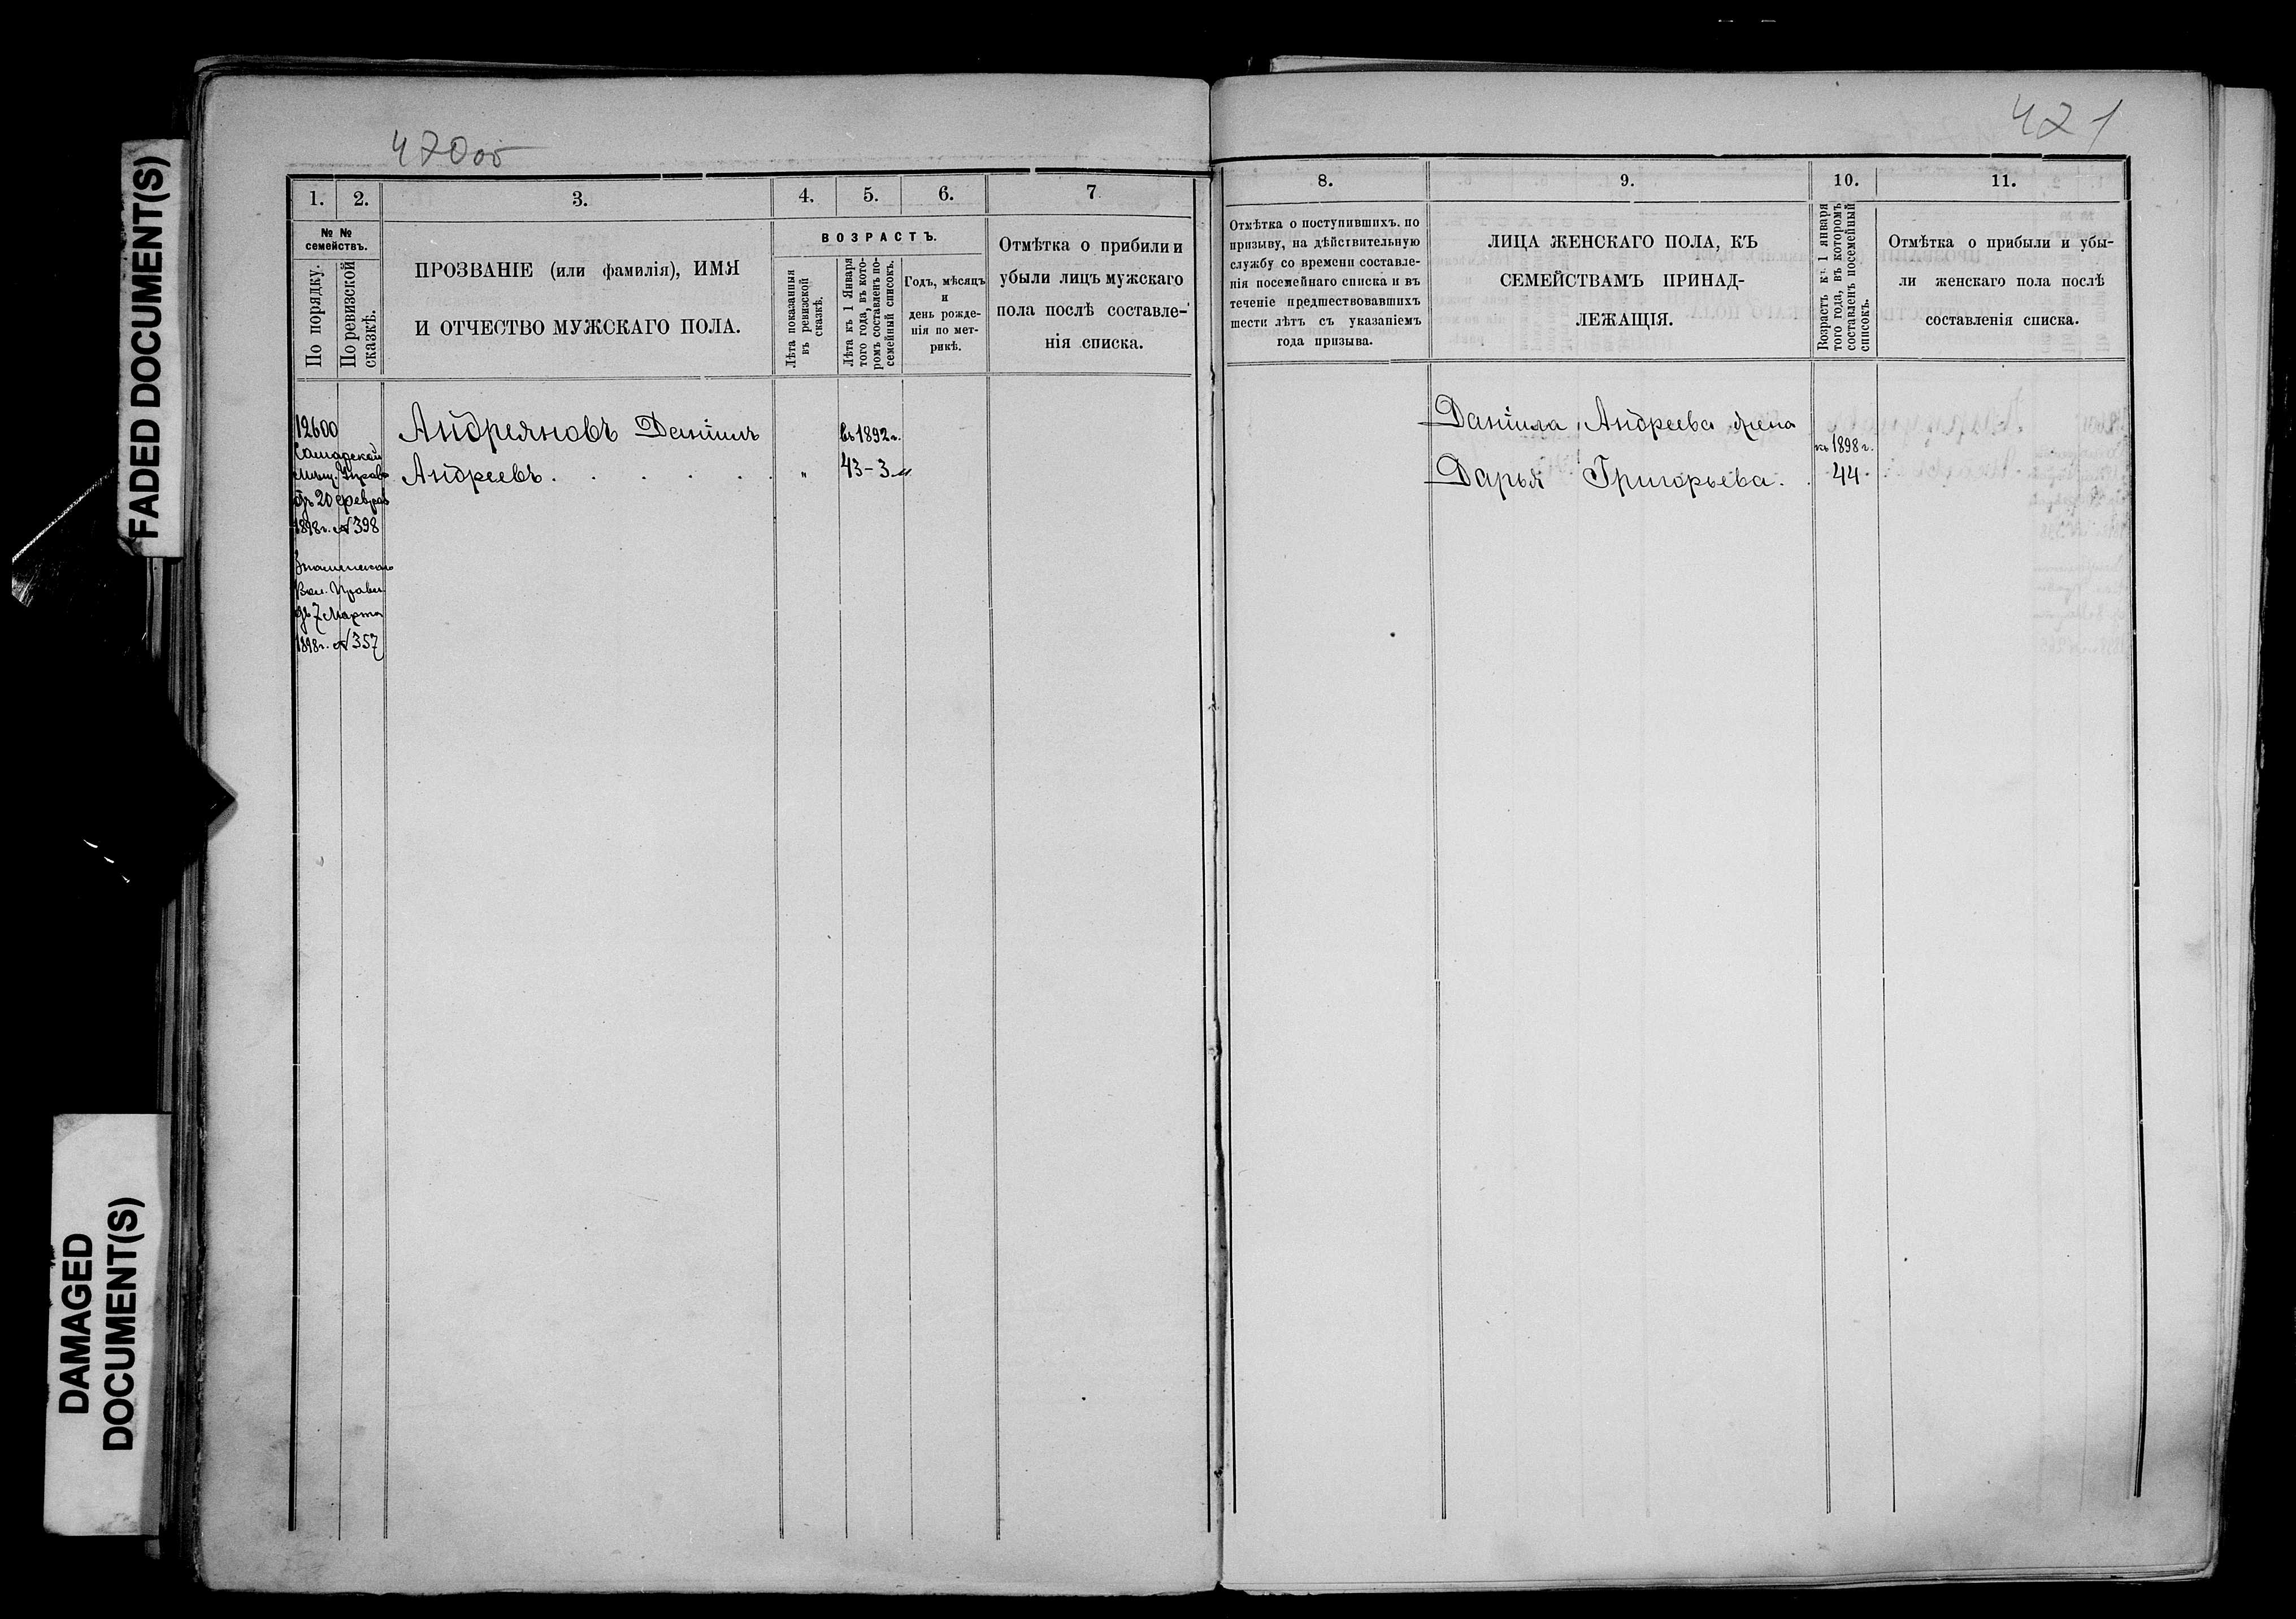 FADED DOCUMENT(S)
DAMAGED
DOCUMENT(S)
470об
1.
2.
3.
4.
5.
6.
7
№ №
семействъ.
По порядку.
По ревизской
сказкѣ.
ПРОЗВАНІЕ (или фамилія), ИМЯ
И ОТЧЕСТВО МУЖСКАГО ПОЛА.
ВОЗРАСТЪ.
Лѣта показанныя
въ ревизской
сказкѣ.
Лѣта къ 1 Января
того года, въ кото-
ромъ составленъ по-
семейный списокъ.
Годъ, мѣсяцъ
и
день рожде-
нія по мет-
рикѣ.
Отмѣтка о прибили и
убыли лицъ мужскаго
пола послѣ составле-
нія списка.
12600
Самарской
Мѣщ. Управ
отъ 20 февраля
1898 г. № 398
Вол. Правл.
отъ 7 Марта
1898 г. № 357
Андреяновъ Даніилъ
Андреевъ . . . . . .
"
въ 1892 г.
43-3
421
8.
9.
10.
11.
Отмѣтка о поступившихъ. по
призыву, на дѣйствительную
службу со времени составле-
нія посемейнаго списка и въ
теченіе предшествовавшихъ
шести лѣтъ съ указаніемъ
года призыва.
ЛИЦА ЖЕНСКАГО ПОЛА, КЪ
СЕМЕЙСТВАМЪ ПРИНАД-
ЛЕЖАЩІЯ.
Возрастъ къ 1 января
того года, въ которомъ
составленъ посемейный
списокъ.
Отмѣтка о прибыли и убы-
ли женскаго пола послѣ
составленія списка.
Даніила Андреева жена
Дарья Григорьева.
къ 1898 г.
44